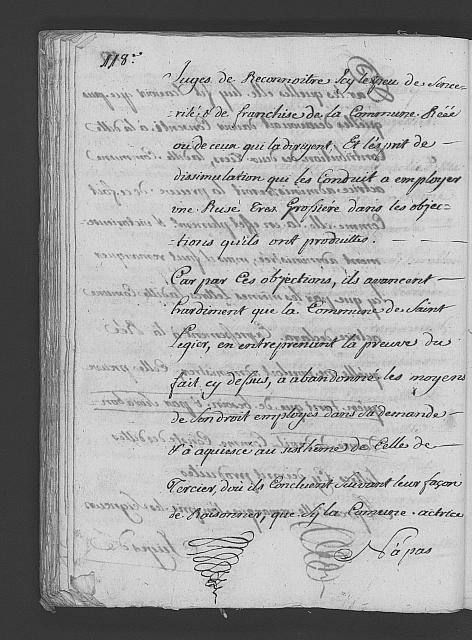 118.
Juges de Reconnoitre Icy le peu de Since-
rité & de franchise de la Commune Réée
ou de ceux qui la dirigent, Et l'esprit de
dissimulation qui les Conduit a employer
une Rusé tres Grossiére dans les objec-
tions qu'ils ont produittes. - - - -
Car par Ces objections, ils avancent
hardiment que la Commune de Saint
Legier, en entreprenant la preuve du
fait cy dessus, a abandonné les moyens
de son droit employés dans sa demande
& a aquiescé au sisthéme de Celle de
Tercier, d'ou ils Concluent suivant leur façon
de Raisonner, que si la Comune actrice
N'a pas